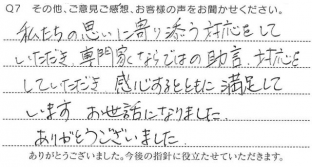 Q7 その他、ご意見ご感想、お客様の声をお聞かせください。
私たちの思いに寄り添う対応をして
いただき、専門家ならではの助言、対応を
していただき 感心するとともに 満足して
います お世話になりました。
ありがとうございました。
ありがとうございました。今後の指針に役立たせていただきます。